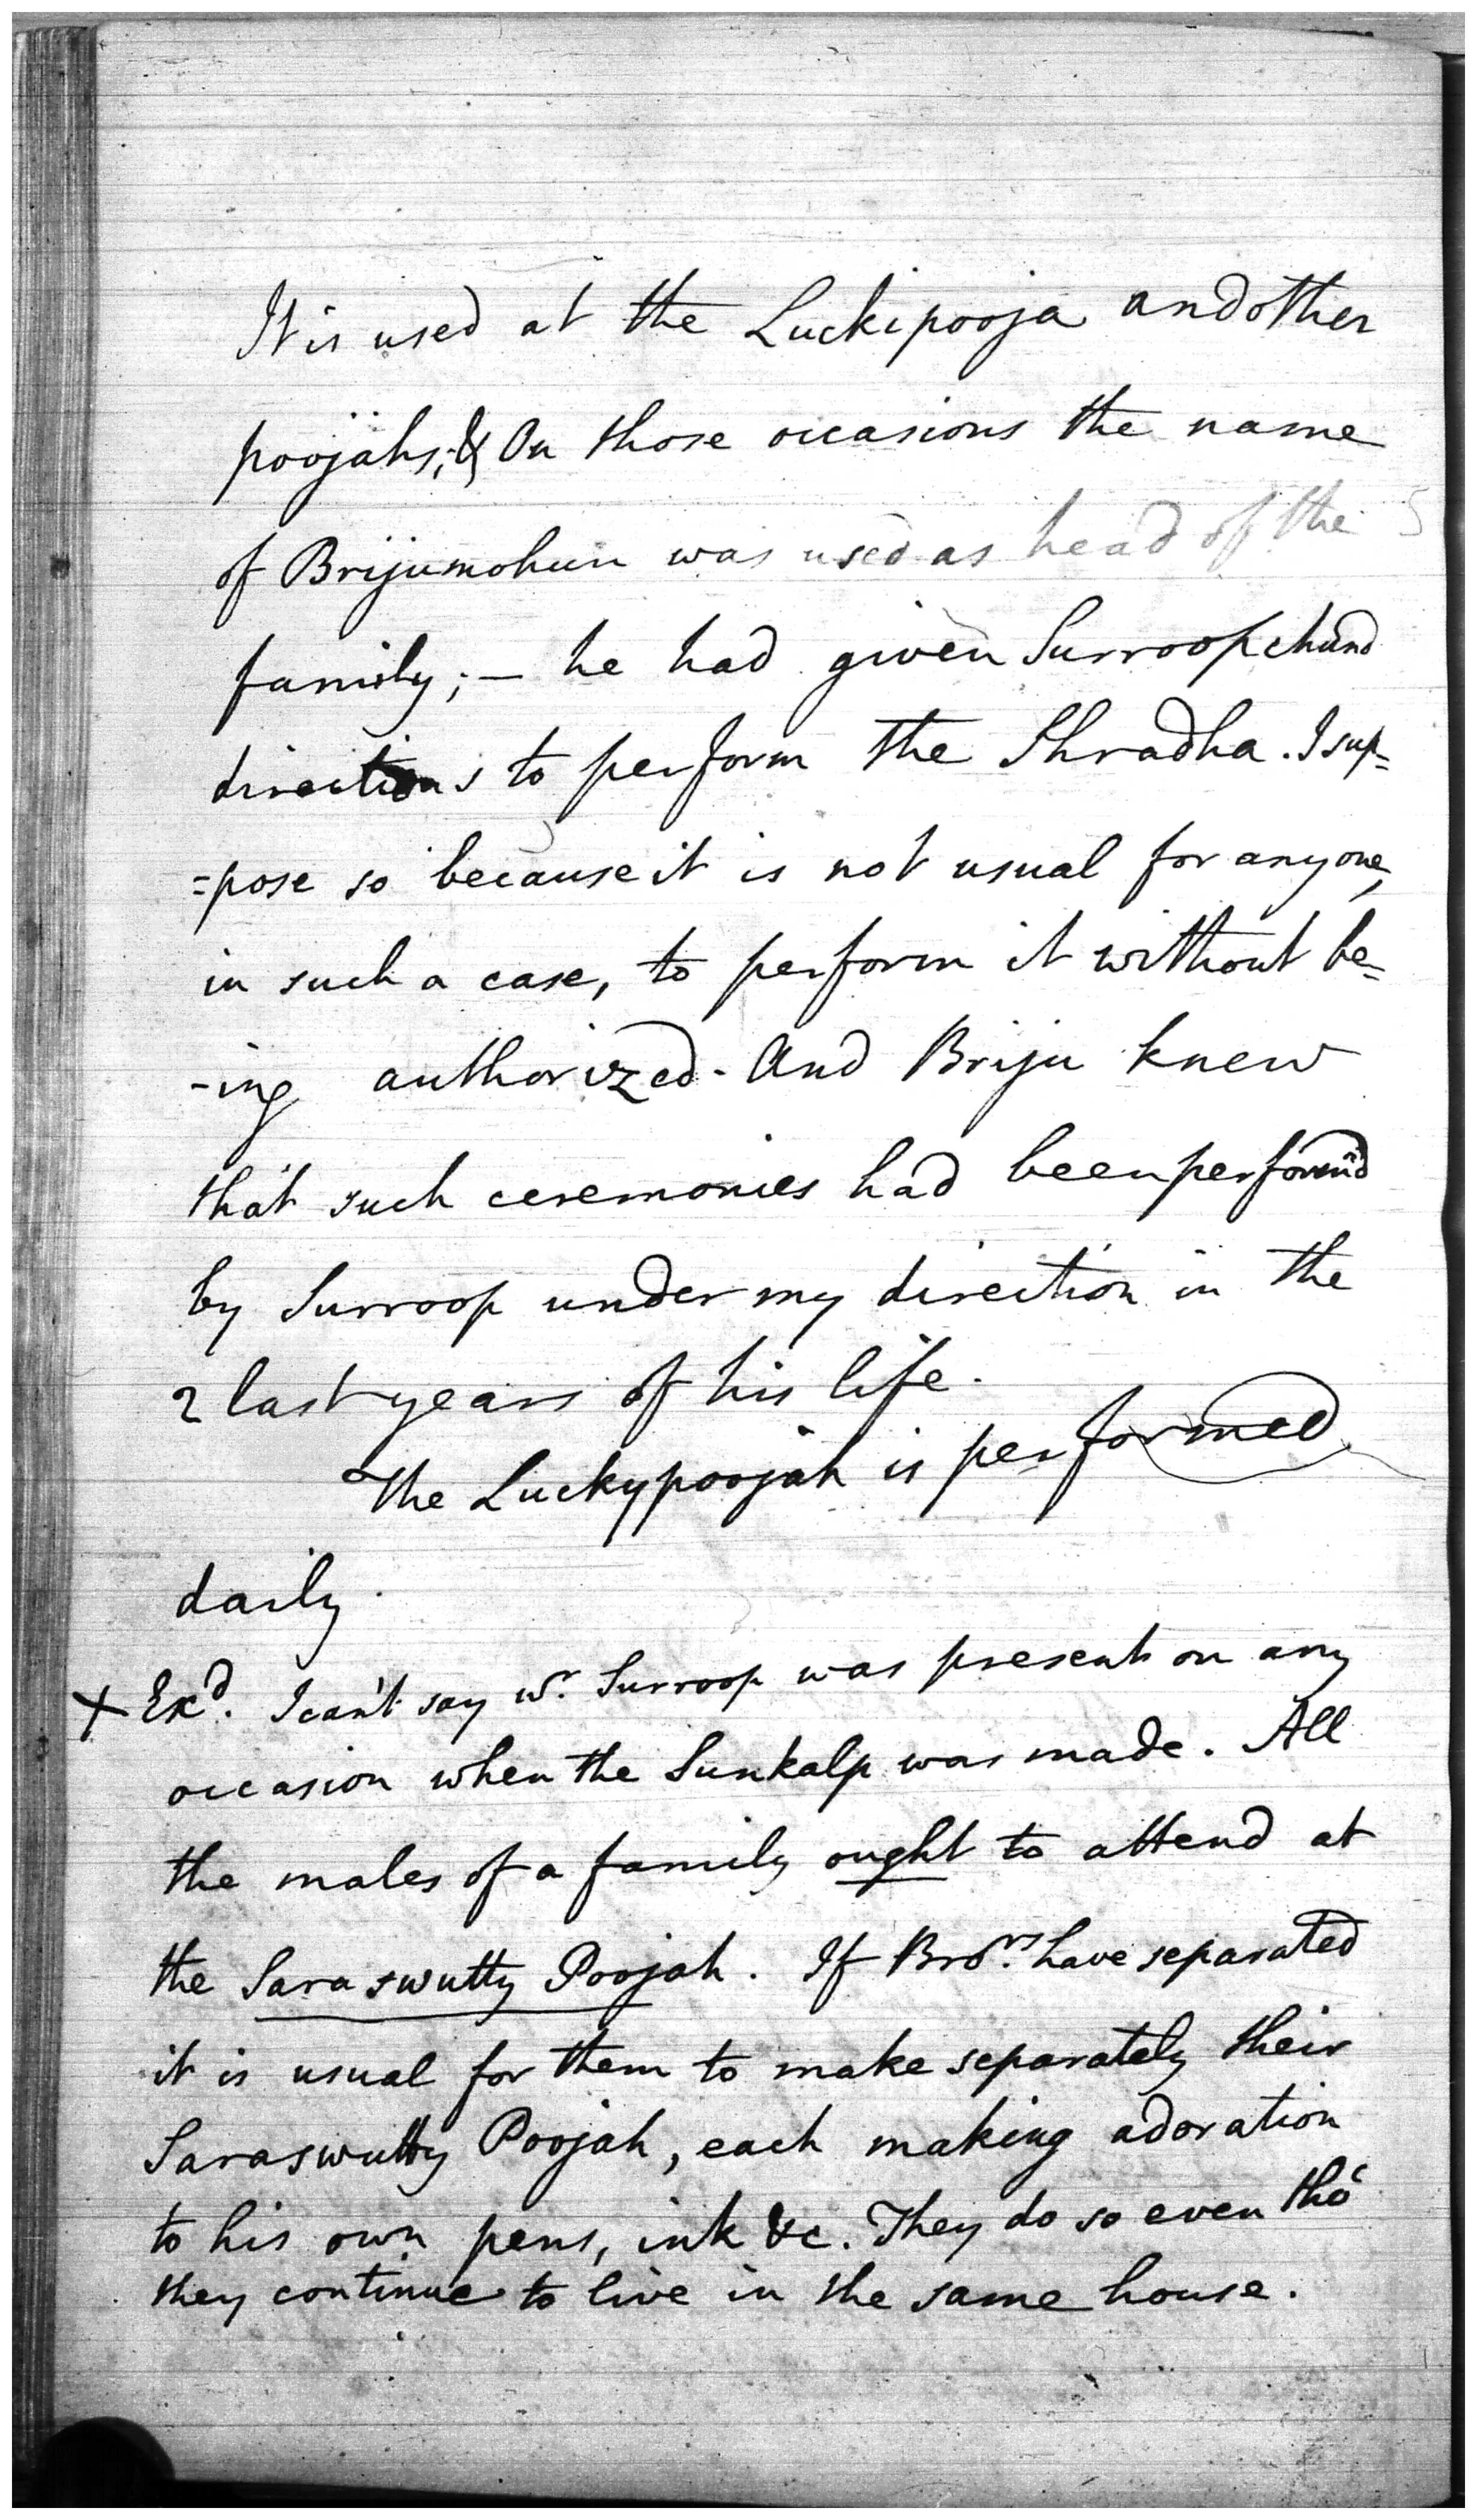 It is used at the Luckipooja and other
poojahs; & On those occasions the name
of Brijumohun was used as head of the
family; — he had given Surroopchund
directions to perform the Shradha. I sup=
=pose so because it is not usual for any one,
in such a case, to perform it without be=
-ing authorized. And Briju knew
that such ceremonies had been perform'd
by Surroop under my direction in the
2 last years of his life.
The Luckypoojah is performed
daily.
X Exd. I can't say wr. Surroop was present on any
occasion when the Sunkalp was made. All
the males of a family ought to attend at
the Saraswutty Poojah. If Brors. have separated
it is usual for them to make separately their
Saraswutty Poojah, each making adoration
to his own pens, ink &c. They do so even tho'
they continue to live in the same house.